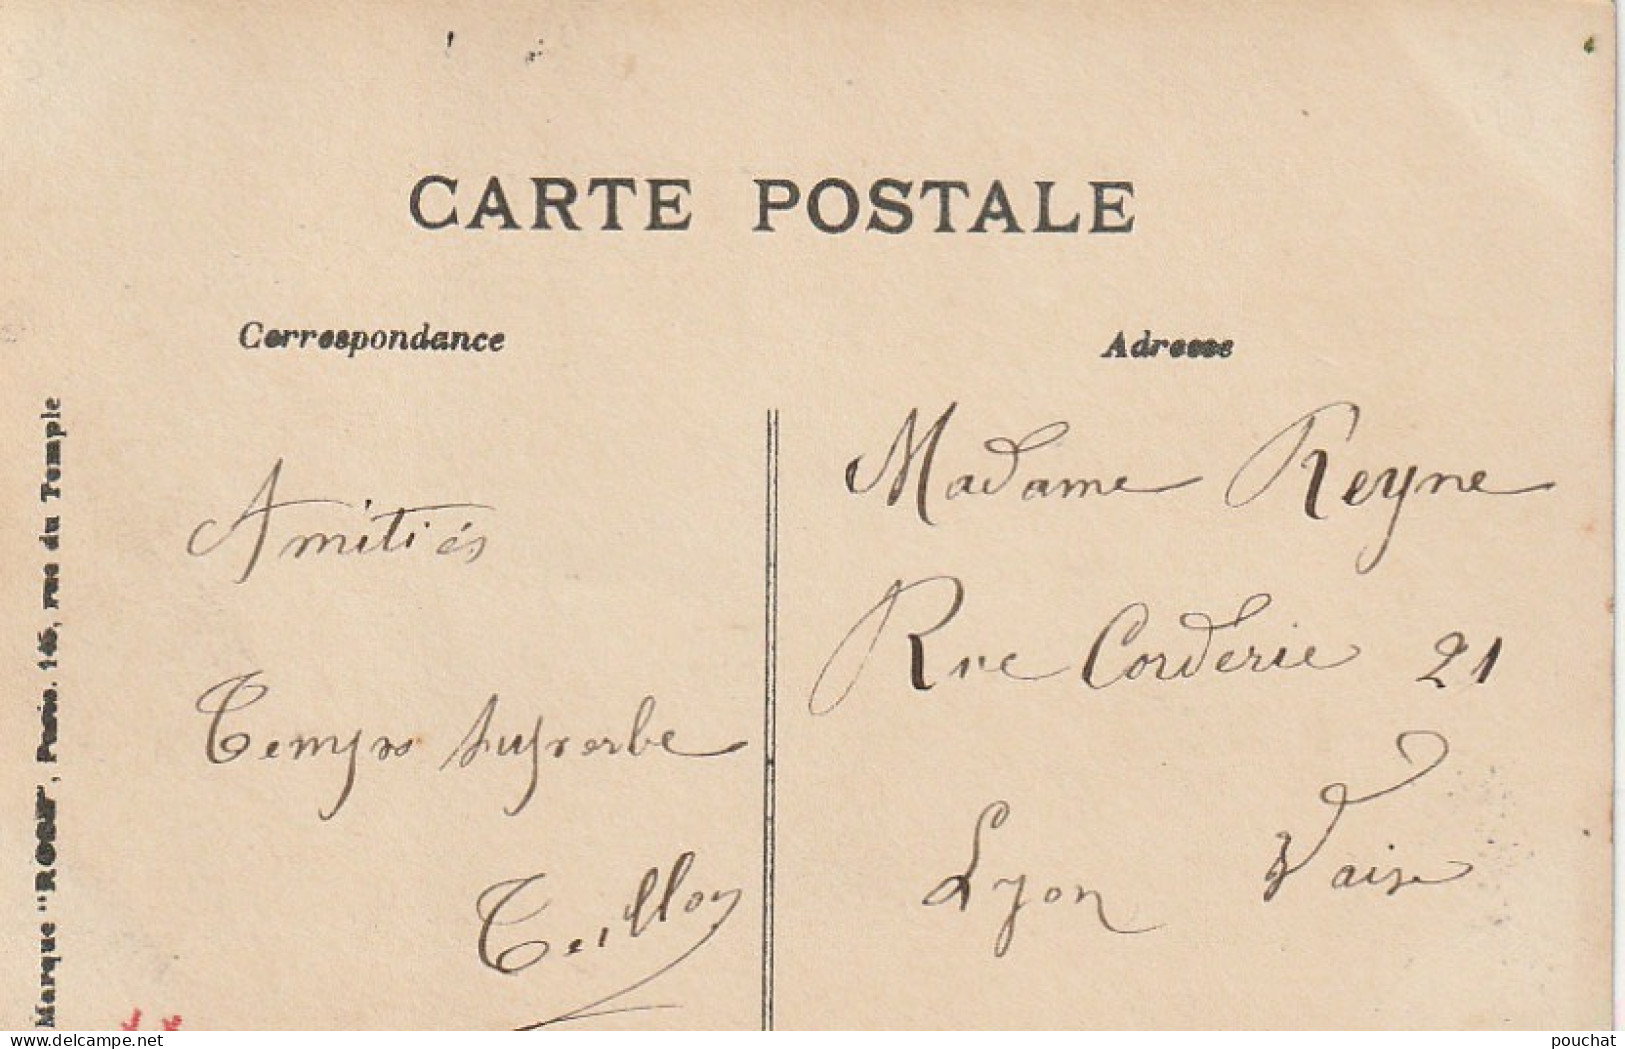 CARTE POSTALE
Correspondance
Adresse
Marque "ROSE", Paris. 146, rue du Temple
Amitiés
Temps superbe
Madame Reyne
Rue Corderie 21
Lyon Vaise
www.delcampe.net
pouchat